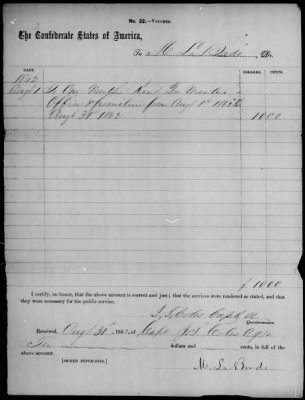 No. 22.—Voucher.
The Confederate States of America,
To M. La Bride, Dr.
DATE. DOLLARS. CENTS.
1862
Augt 1 To One Months Rent Qr Masters
Office & furniture from Augt 1st 1862 to
Augt 30th 1862 10 00
$ 10 00
I certify, on honor, that the above account is correct and just; that the services were rendered as stated, and that
they were necessary for the public service.
Capt & 
Quartermaster.
Received, Augt 30th 1862, of Capt Coles Aqm
Ten dollars and cents, in full of the
above account.
[SIGNED DUPLICATES.]
M. La Bride